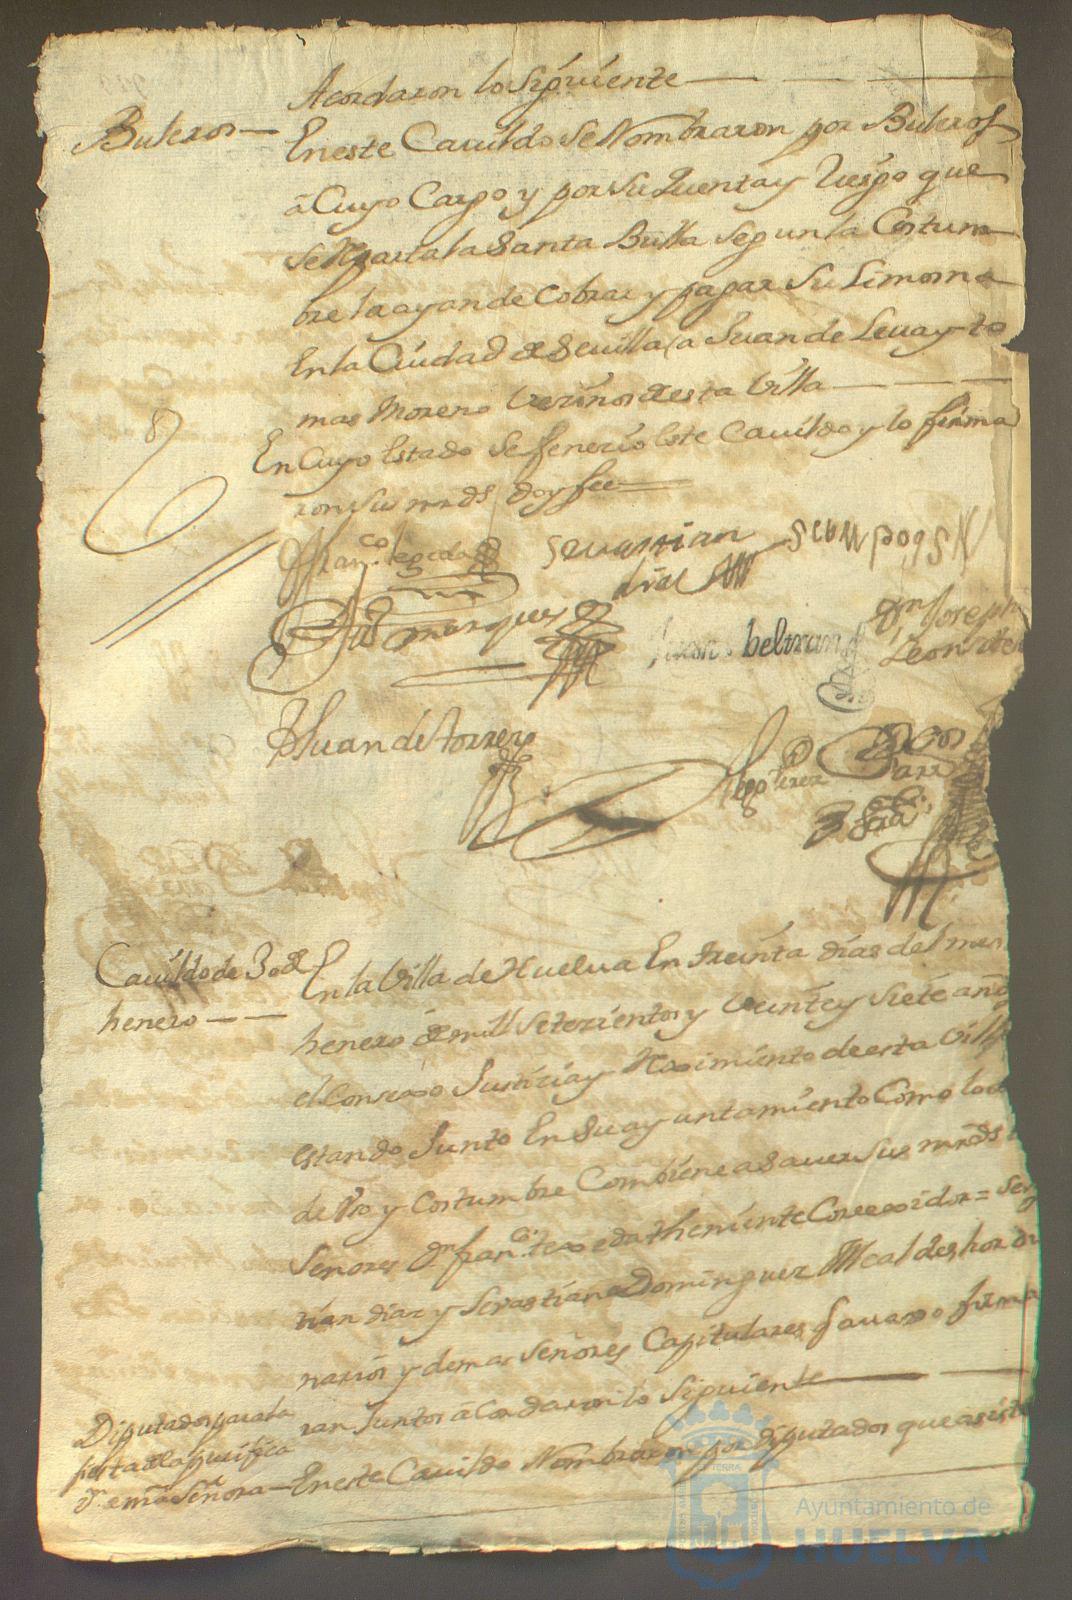 Acordaron lo Siguiente
Buleros
En este Cauildo Se Nombraron por Buleros
a Cuyo Cargo y por Su quenta y Riesgo que
Se Reparta la Santa Bulla Segun la Costum
bre la ayan de Cobrar y pagar Su Limosna
En la Ciudad de Seuilla a Juan de Leua y to
mas Moreno Vezinos de esta Villa
En Cuyo Estado Se fenezio Este Cauildo y lo firma
ron sus mrds doy fee
Franco. texeda
Seuastian
dias
Marques
Juan beltran
Dn Joseph
Leonardo
Juan de torres
Diego Perez
Cauildo de 30 de
henero
En la Villa de Huelua En treinta dias del mes
henero de mill Setezientos y Veinte y Siete años
el Consexo Justizia y Reximiento de esta Villa
estando Junto En Su ayuntamiento Como lo a
de Vso y Costumbre Combiene a Sauer Sus mrds
Señores Dn franco. texeda theniente Correxidor = Seu
tian diaz y Seuastian Dominguez Alcaldes hordi
narios y demas Señores Capitulares q auaxo firma
ran Juntos acordaron lo Siguiente
Diputados para la
fiesta de la purifica
on. de nra Señora
En este Cauildo Nombraron por diputados que asista
Ayuntamiento de
HUELVA